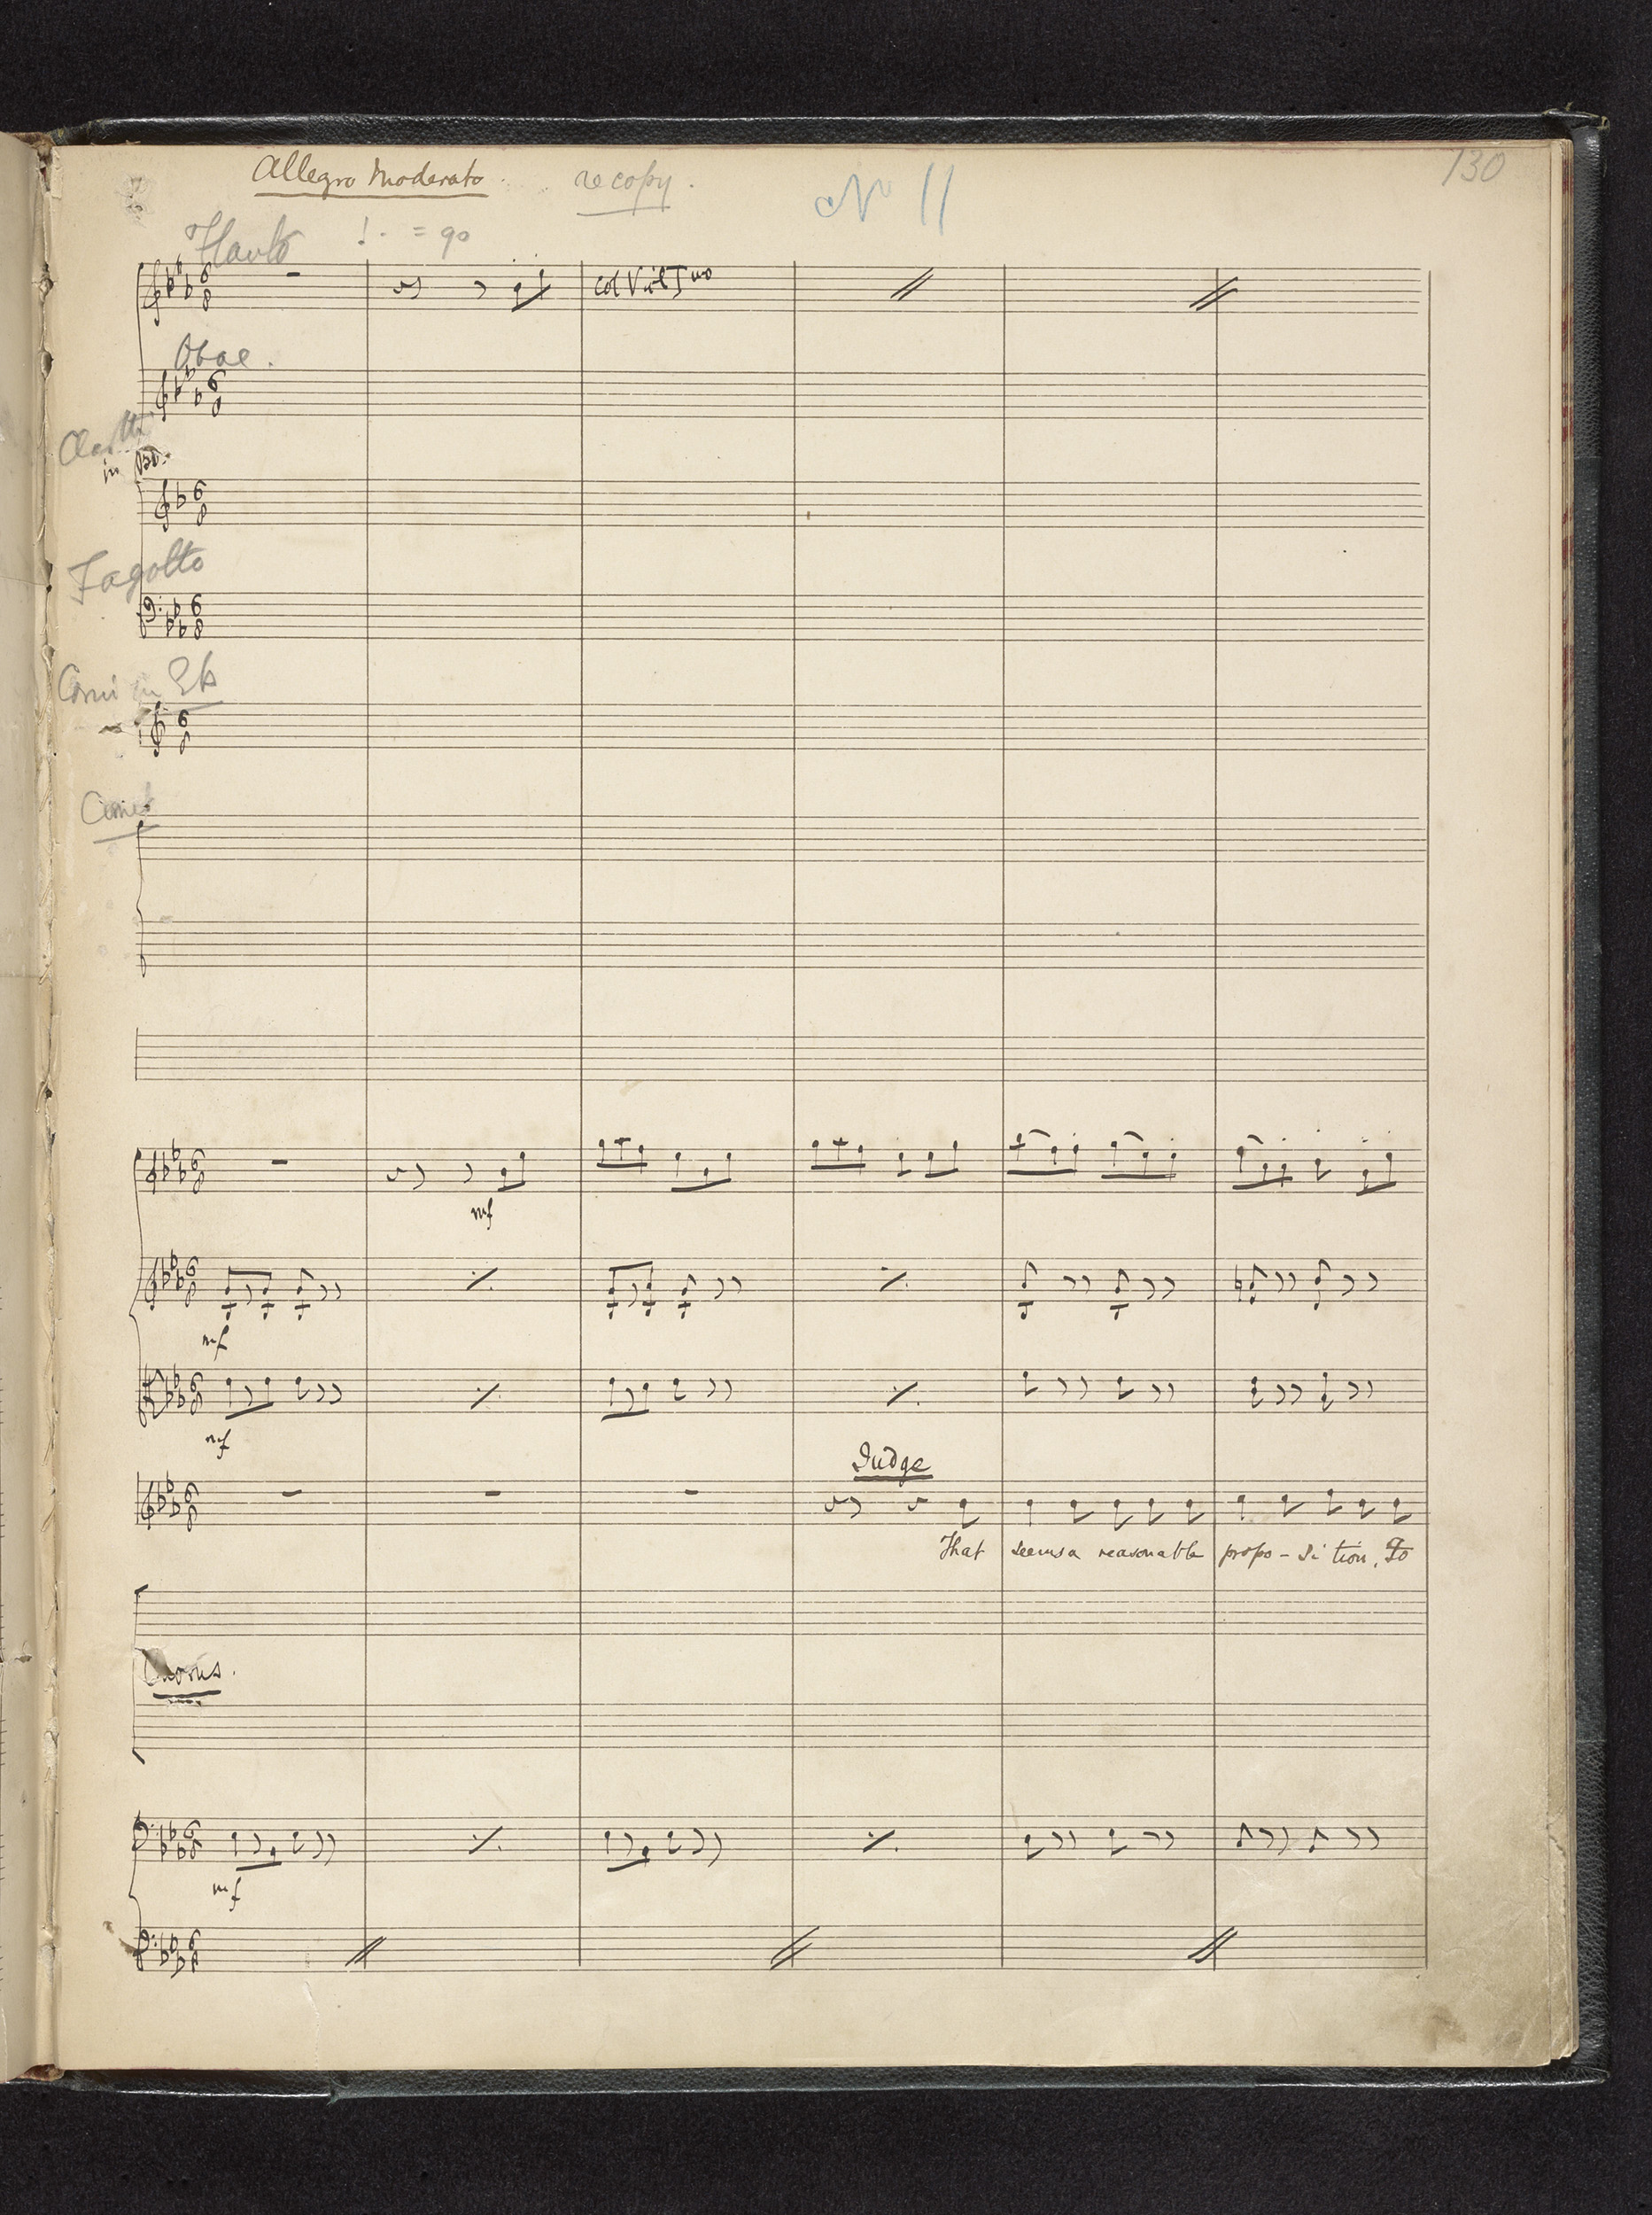 130
Allegro Moderato. recopy.
No 11
Flauto ♩. = 90
col Viol Imo
Oboe.
Cla tti
in Bb.
Fagotto
Corni in Eb
Cornet
mf
mf
mf
Judge
That seems a reasonable propo-si tion, To
Chorus.
mf